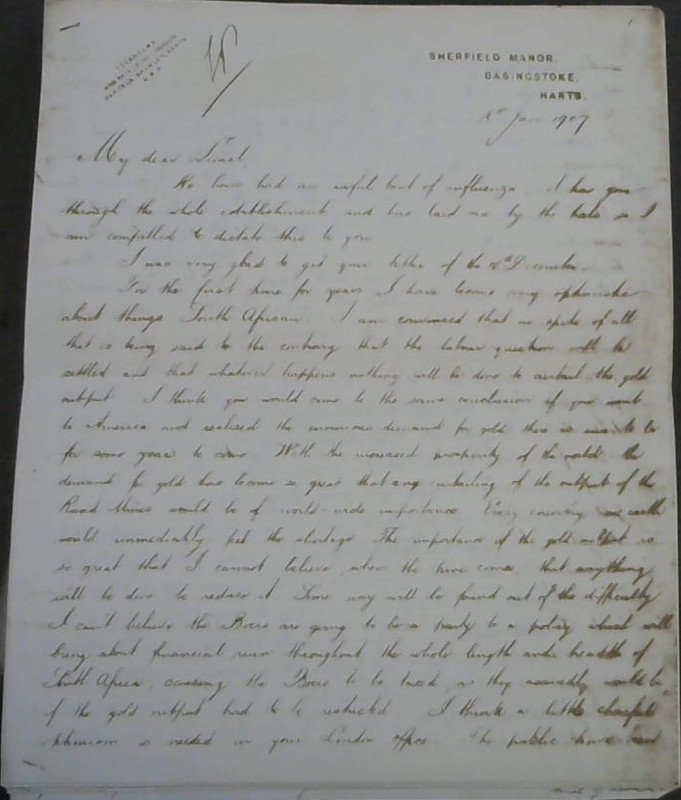 SHERFIELD MANOR.
BASINGSTOKE.
HANTS.
Jan 1907
My dear Lionel
We have had an awful bout of influenza. It has gone
through the whole establishment and has laid me by the heels so I
am compelled to dictate this to you
I was very glad to get your letter of the December.
For the first time for years I have become very optimistic
about things South African. I am convinced that in spite of all
that is being said to the contrary that the labour question will be
settled and that whatever happens nothing will be done to curtail the gold
output. I think you would come to the same conclusion if you went
to America and realised the enormous demand for gold there is to be
for some years to come. With the increased prosperity of the world the
demand for gold has become so great that any curtailing of the output of the
Rand Mines would be of world-wide importance. Every country on earth
would immediately feel the shortage. The importance of the gold output is
so great that I cannot believe, when the time comes, that anything
will be done to reduce it. Some way will be found out of the difficulty
I can't believe the Boers are going to be a party to a policy which will
bring about financial ruin throughout the whole length and breadth of
South Africa, causing the Boers to be, as they assuredly would be,
if the gold output had to be restricted. I think a little cheerful
optimism is needed in your London office. The public have